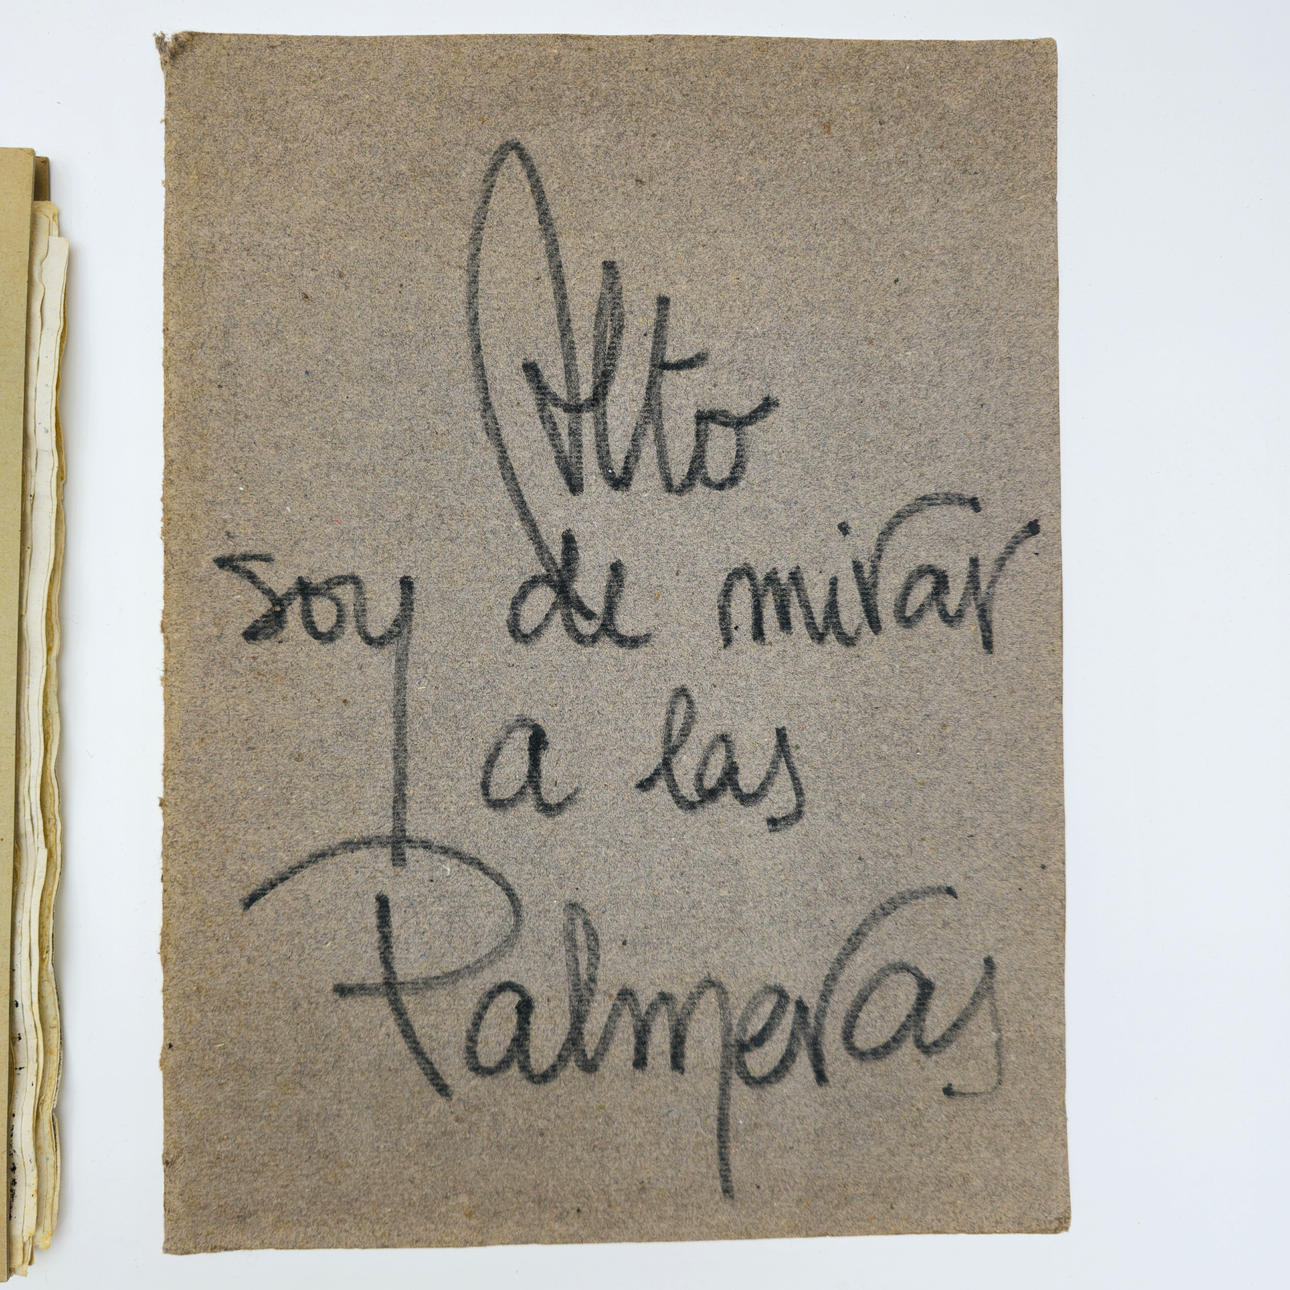 Alto
soy de mirar
a las
Palmeras